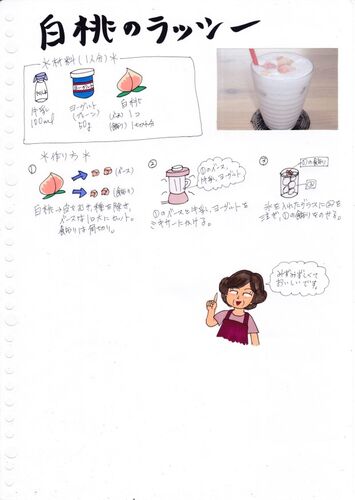 白桃のラッシー
*材料(1人分)*
MILK
ヨーグルト
牛乳
100ml
ヨーグルト
(プレーン)
50g
白桃
(ベース) 1コ
(飾り)
*作り方*
① (ベース) (飾り)
白桃→皮をむき、種を除き、
ベースは10大にカット。
飾りは角切り。
② ①のベース、牛乳、ヨーグルト
①のベースと牛乳、ヨーグルトを
ミキサーにかける。
③ ①の飾り
②
氷を入れたグラスに②を
注ぎ、①の飾りをのせる。
みずみずしくて
おいしいです。